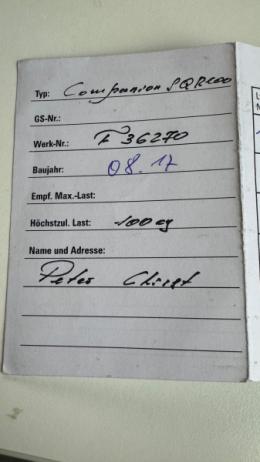 Typ: Companion SQR100
GS-Nr.:
Werk-Nr.: F 36270
Baujahr: 08.17
Empf. Max.-Last:
Höchstzul. Last: 100
Name und Adresse:
Peter